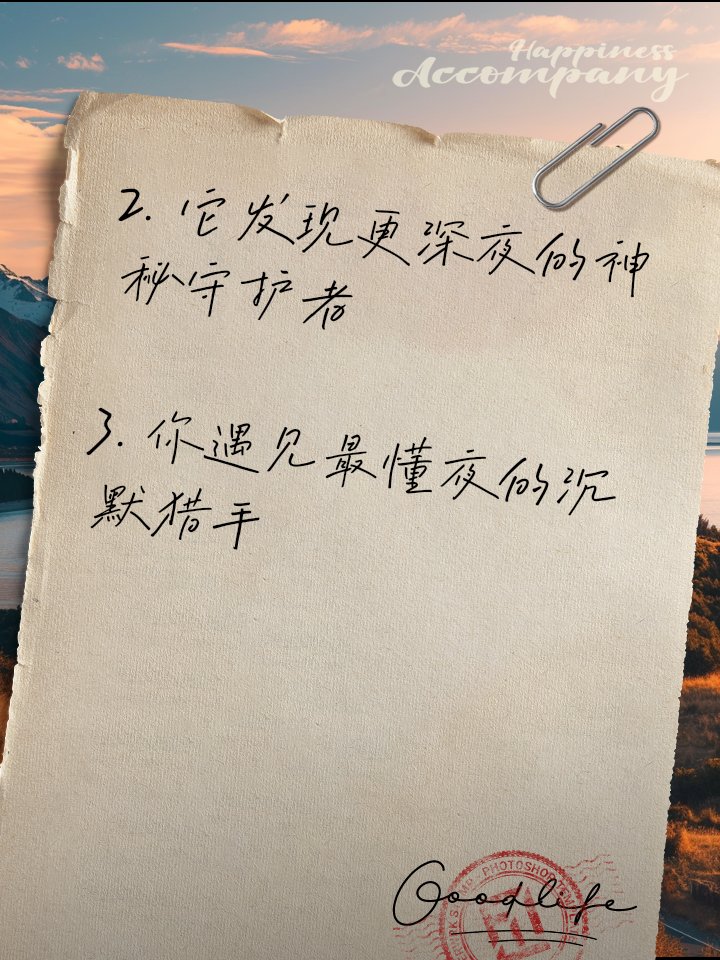 Happiness
Accompany
2. 它发现更深夜的神
秘守护者
3. 你遇见最懂夜的沉
默猎手
PHOTOSHOP
Goodlife